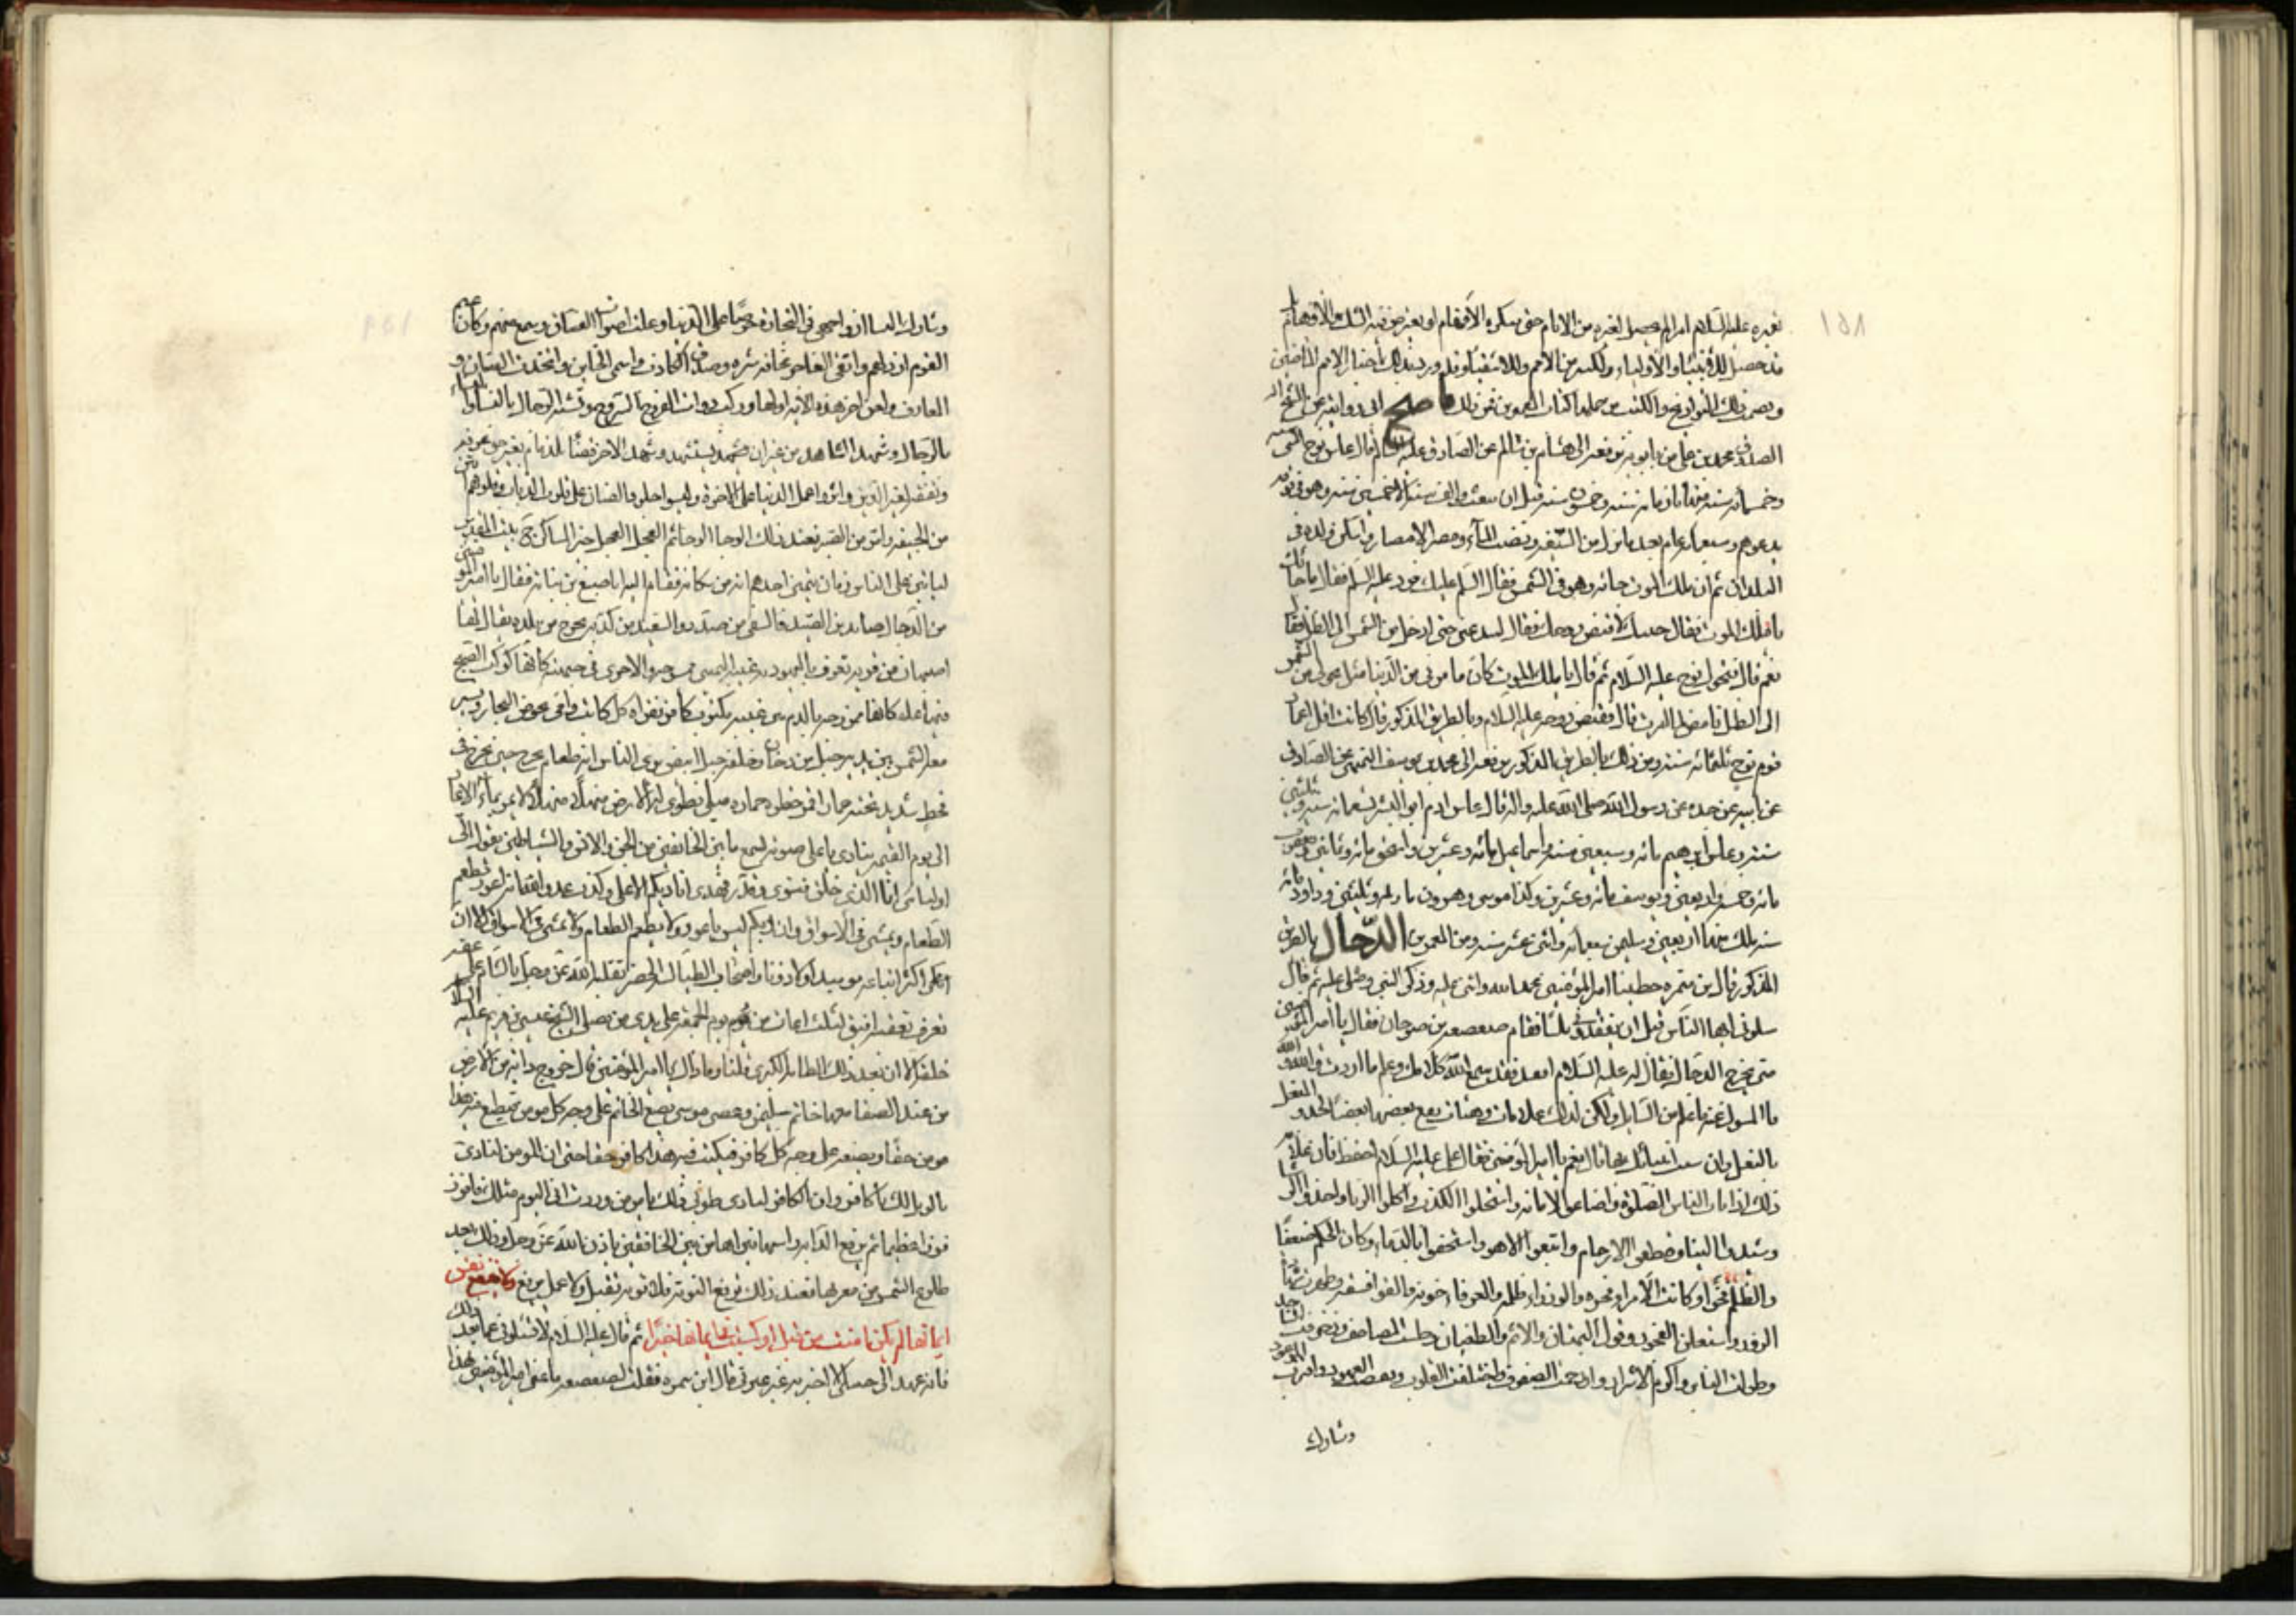 غيره عليه السلام امرا لم يحصل لغيره من الانام حتى ينكره الأفهام او يعترض فيه الشك والأوهام بل
قد حصل للأنبياء والأولياء ولكثير من الأمم وللاشقياء وقد ورد بذلك أخبار الامم الماضين
ذلك التواريخ والكتب من جملتها كتاب المعمرين فمن ذلك ما صح لي روايته عن الشيخ
الصدوق محمد بن علي بن بابويه يرفعه الى هشام بن سالم عن الصادق عليه السلام قال عاش نوح الفي سنة
وخمسمائة سنة منها ثمانمائة سنة وخمسون سنة قبل ان يبعث والف سنة الا خمسين سنة وهو في قومه
يدعوهم وسبعمائة عام بعد ما نزل من السفينة ونضب الماء ومصر الامصار واسكن ولده في
البلدان ثم ان ملك الموت جائه وهو في الشمس فقال السلام عليك فرد عليه السلام فقال ما جاء بك
يا ملك الموت فقال جئتك لاقبض روحك فقال له تدعني حتى ادخل من الشمس الى الظل فقال
نعم قال فتحول نوح عليه السلام ثم قال يا ملك الموت كان ما مر بي من الدنيا مثل تحولي من الشمس
الى الظل فامض لما امرت قال فقبض روحه عليه السلام وبالطريق المذكور قال كانت اعمار
قوم نوح ثلثمائة سنة ومن ذلك بالطريق المذكور يرفعه الى محمد بن يوسف التميمي عن الصادق
عن ابيه عن جده عن رسول الله صلى الله عليه واله قال عاش ادم ابو البشر تسعمائة سنة وثلثين
سنة وعاش ابرهيم مائة وسبعين سنة واسماعيل مائة وعشرين واسحق مائة وثمانين ويعقوب
مائة وعشرين ويوسف مائة وعشرين وكذا موسى وهرون مائة وثلثين وداود مائة
سنة ملك منها اربعين وسليمن سبعمائة واثنى عشر سنة ومن المعمرين الدجال بالطريق
المذكور قال بن سمره خطبنا امير المؤمنين فحمد الله واثنى عليه وذكر النبي وصلى عليه ثم قال
سلوني ايها الناس قبل ان تفقدوني ثلثا فقام صعصعة بن صوحان فقال يا امير المؤمنين
متى يخرج الدجال فقال له عليه السلام اقعد فقد سمع الله كلامك وعلم ما اردت والله
ما المسول عنه باعلم من السايل ولكن لذلك علامات وهنات يتبع بعضها بعضا كحذو النعل
بالنعل وان شئت انبأتك بها قال نعم يا امير المؤمنين فقال علي عليه السلام احفظ فان علامة
ذلك اذا امات الناس الصلوة واضاعوا الامانة واستحلوا الكذب واكلوا الربا واخذوا الرشا
وشيدوا البنا وقطعوا الارحام واتبعوا الاهوا واستخفوا بالدماء وكان الحلم ضعفا
والظلم فخرا وكانت الأمراء فجرة والوزراء ظلمة والعرفاء خونة والقراء فسقة وظهرت شهادات
الزور واستعلن الفجور وقول البهتان والاثم والطغيان وحليت المصاحف وزخرفت المساجد
وطولت المنابر واكرم الاشرار وازدحمت الصفوف واختلفت القلوب ونقضت العهود واقترب الموعود
وشارك
وشارك النساء ازواجهن في التجارة حرصا على الدنيا وعلت اصوات الفساق وسمع منهم وكان زعيم
القوم ارذلهم واتقى الفاجر مخافة شره وصدق الكاذب وائتمن الخاين واتخذت القيان و
المعازف ولعن اخر هذه الامة اولها وركب ذوات الفروج السروج وتشبه الرجال بالنساء والنساء
بالرجال وشهد الشاهد من غير ان يستشهد وشهد الاخر قضاء لذمام بغير حق عرفه
وتفقه لغير الدين واثروا عمل الدنيا على الاخرة ولبسوا جلود الضان على قلوب الذياب وقلوبهم انتن
من الجيفة وامر من الصبر فعند ذلك الوحا الوحا ثم العجل العجل خير المساكن بيت المقدس
لياتين على الناس زمان يتمنى احدهم انه من سكانه فقام اليه اصبغ بن نباته فقال يا امير المؤمنين
من الدجال صايد بن الصيد فالشقي من صدقه والسعيد من كذبه يخرج من بلدة يقال لها
اصبهان من قرية تعرف باليهودية عينه اليمنى ممسوحه والاخرى في جبهته كانها كوكب الصبح
فيها علقة كانها ممزوجة بالدم بين عينيه مكتوب كافر يقراه كل كاتب وامي يخوض البحار وتسير
معه الشمس بين يديه جبل من دخان وخلفه جبل ابيض يرى الناس انه طعام يخرج حين يخرج في
قحط شديد تحته حمار اقمر خطوة حماره ميل تطوى له الارض منهلا منهلا لا يمر بماء الا غار
الى يوم القيمة ينادي باعلى صوته يسمع ما بين الخافقين من الجن والانس والشياطين يقول الى
اوليائي انا الذي خلق فسوى وقدر فهدى انا ربكم الاعلى وكذب عدو الله انه اعور يطعم
الطعام ويمشي في الأسواق وان ربكم ليس باعور ولا يطعم الطعام ولا يمشي في الاسواق الا ان
اكثر اتباعه يومئذ اولاد زنا واصحاب الطيالسة الخضر يقتله الله عز وجل بالشام على عقبة
تعرف بعقبة افيق لثلث ساعات من يوم الجمعة على يدي من يصلي المسيح عيسى بن مريم عليه السلام
خلفه الا ان بعد ذلك الطامة الكبرى قلنا وما ذاك يا امير المؤمنين قال خروج دابة من الأرض
من عند الصفا معها خاتم سليمن وعصى موسى تضع الخاتم على وجه كل مومن فيطبع فيه هذا
مومن حقا وتضعه على وجه كل كافر فيكتب فيه هذا كافر حقا حتى ان المومن لينادي
بالويل لك يا كافر وان الكافر لينادي طوبى لك يا مومن وددت اني اليوم مثلك فافوز
فوزا عظيما ثم ترفع الدابة راسها من بين الخافقين باذن الله عز وجل وذلك بعد
طلوع الشمس من مغربها فعند ذلك ترفع التوبة فلا توبة تقبل ولا عمل يرفع ولا ينفع نفس
ايمانها لم تكن امنت من قبل او كسبت في ايمانها خيرا ثم قال عليه السلام لا تسئلوني عما بعد ذلك
فانه عهد الي حبيبي الا اخبر به غير عترتي قال ابن سمره فقلت لصعصعه ما عنى امير المؤمنين بهذا